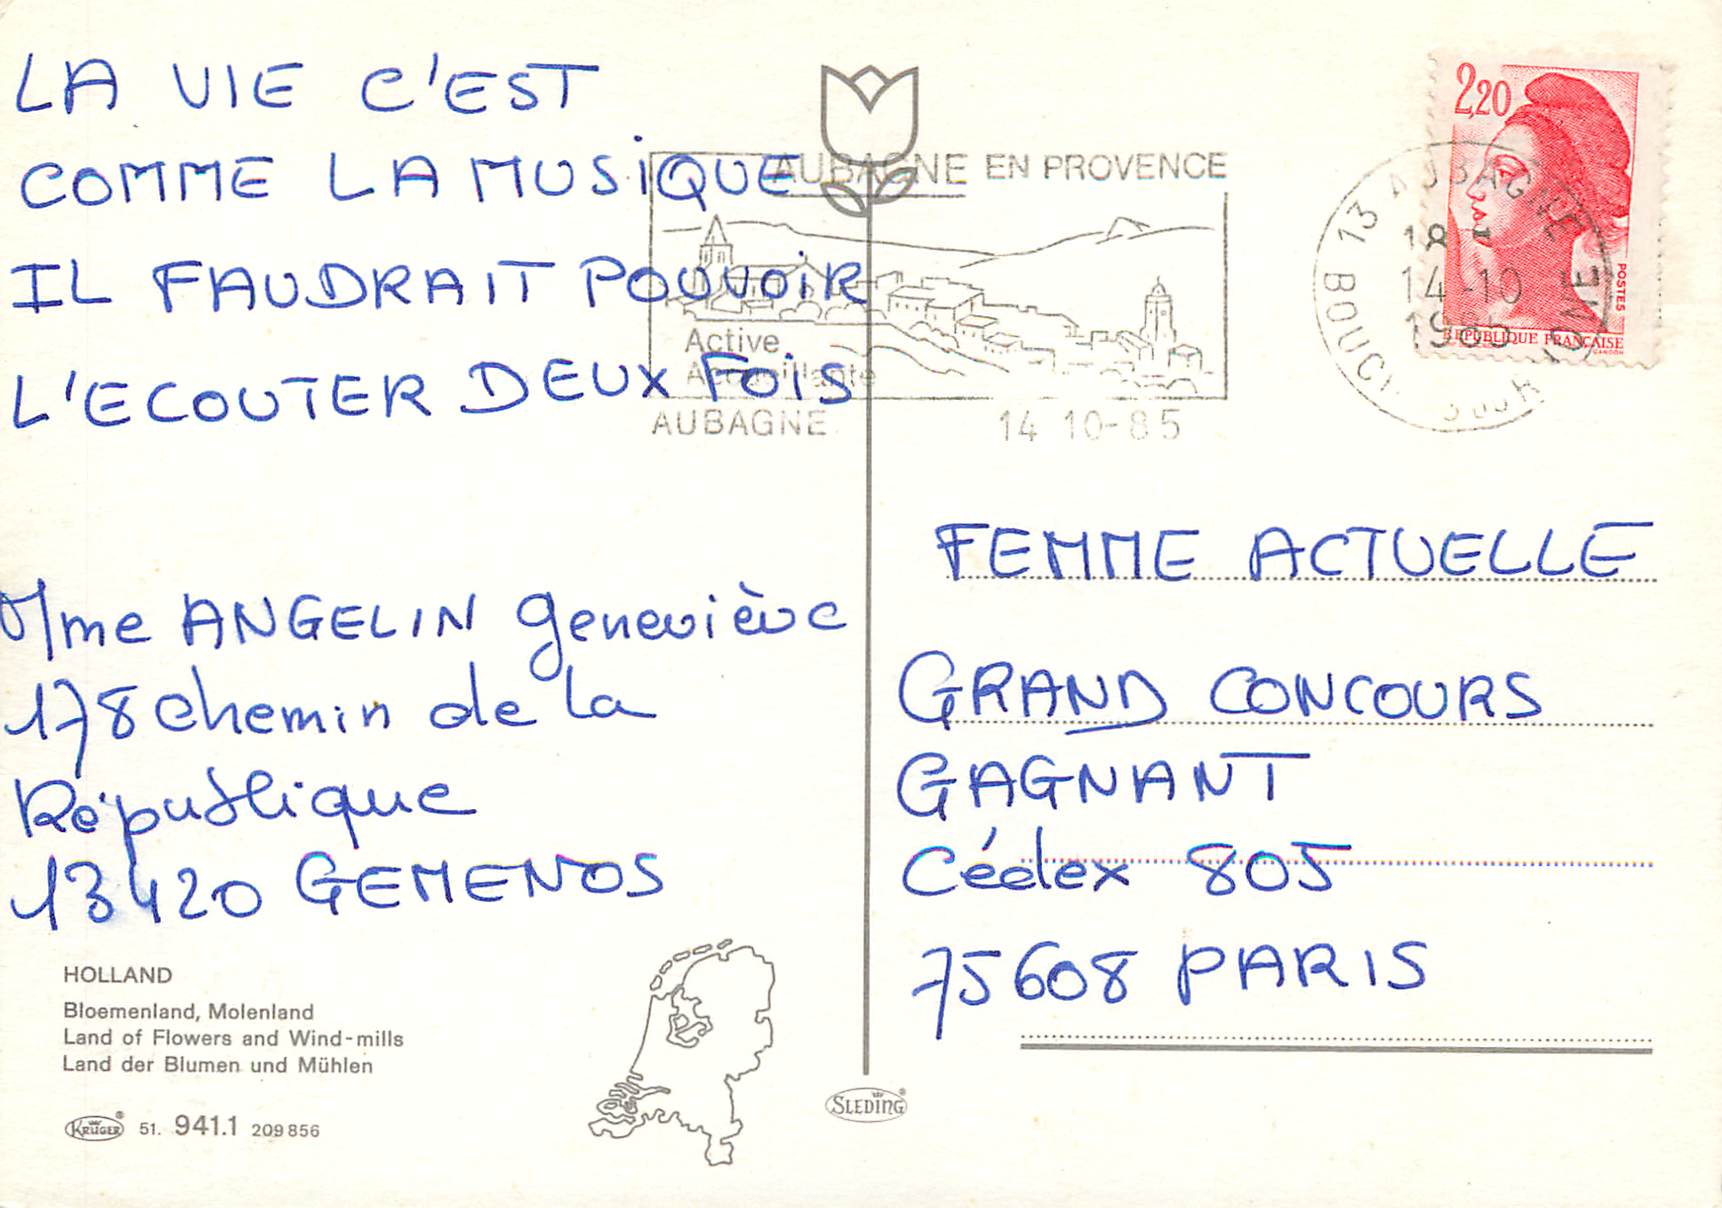 LA VIE C'EST
COMME LA MUSIQUE
IL FAUDRAIT POUVOIR
L'ECOUTER DEUX FOIS
Mme ANGELIN Geneviève
178 chemin de la
République
13420 GEMENOS
HOLLAND
Bloemenland, Molenland
Land of Flowers and Wind-mills
Land der Blumen und Mühlen
KRÜGER® 51. 941.1 209856
SLEDING®
AUBAGNE EN PROVENCE
Active
Accueillante
AUBAGNE 14 10-85
2,20
POSTES
REPUBLIQUE FRANÇAISE
GANDON
13 AUBAGNE
18 H
14-10
1985
FEMME ACTUELLE
GRAND CONCOURS
GAGNANT
Cédex 805
75608 PARIS